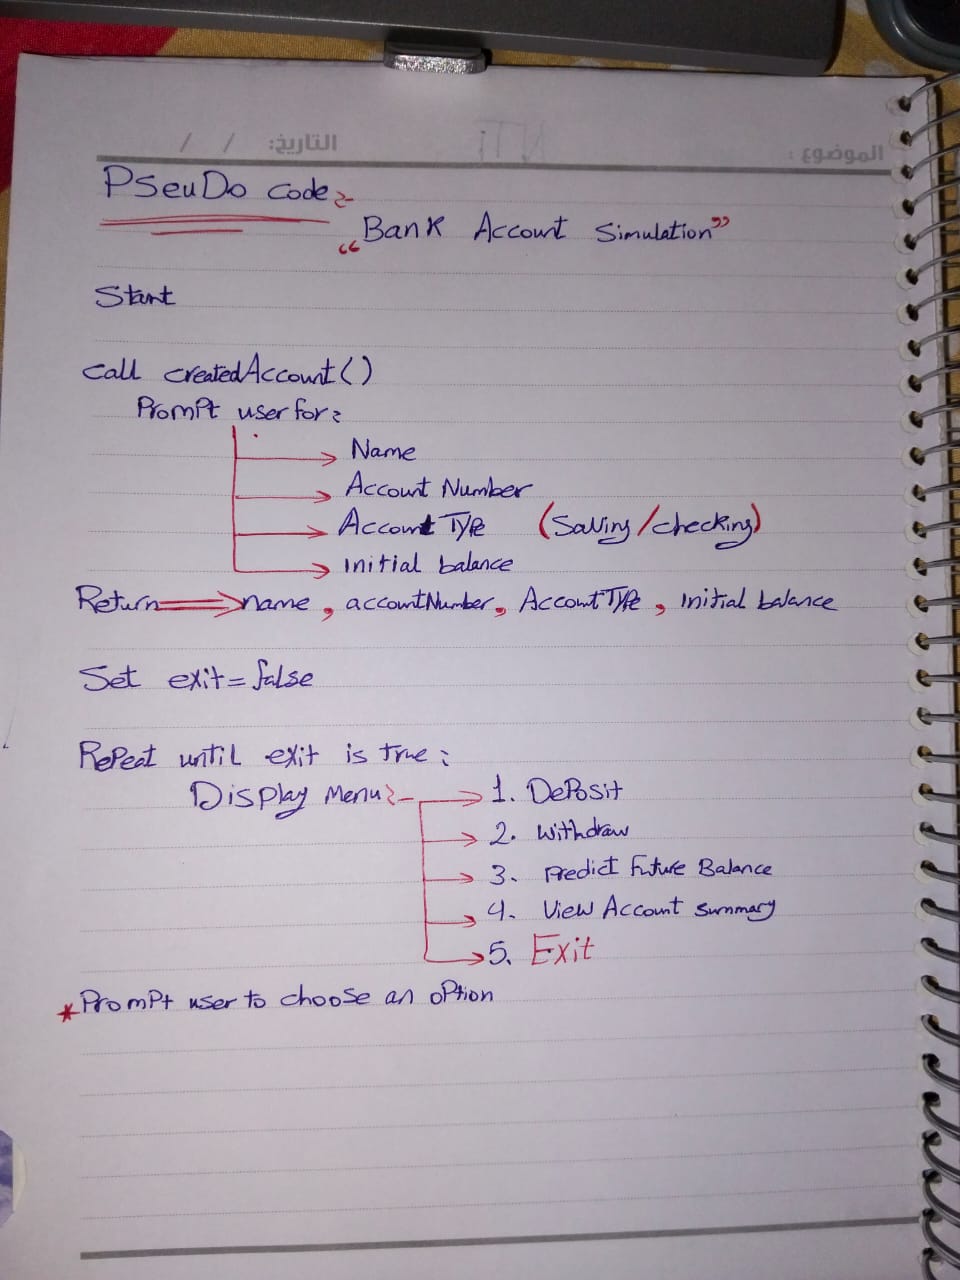 الموضوع : التاريخ: / /
PSeuDo code:-
"Bank Account Simulation"
Start
call createdAccount()
Prompt user for:
Name
Account Number
Account Type (Saving/checking)
initial balance
Return => name, accountNumber, AccountType, initial balance
Set exit = false
Repeat until exit is true:
Display Menu:-
1. Deposit
2. withdraw
3. Predict Future Balance
4. View Account summary
5. Exit
* Prompt user to choose an option